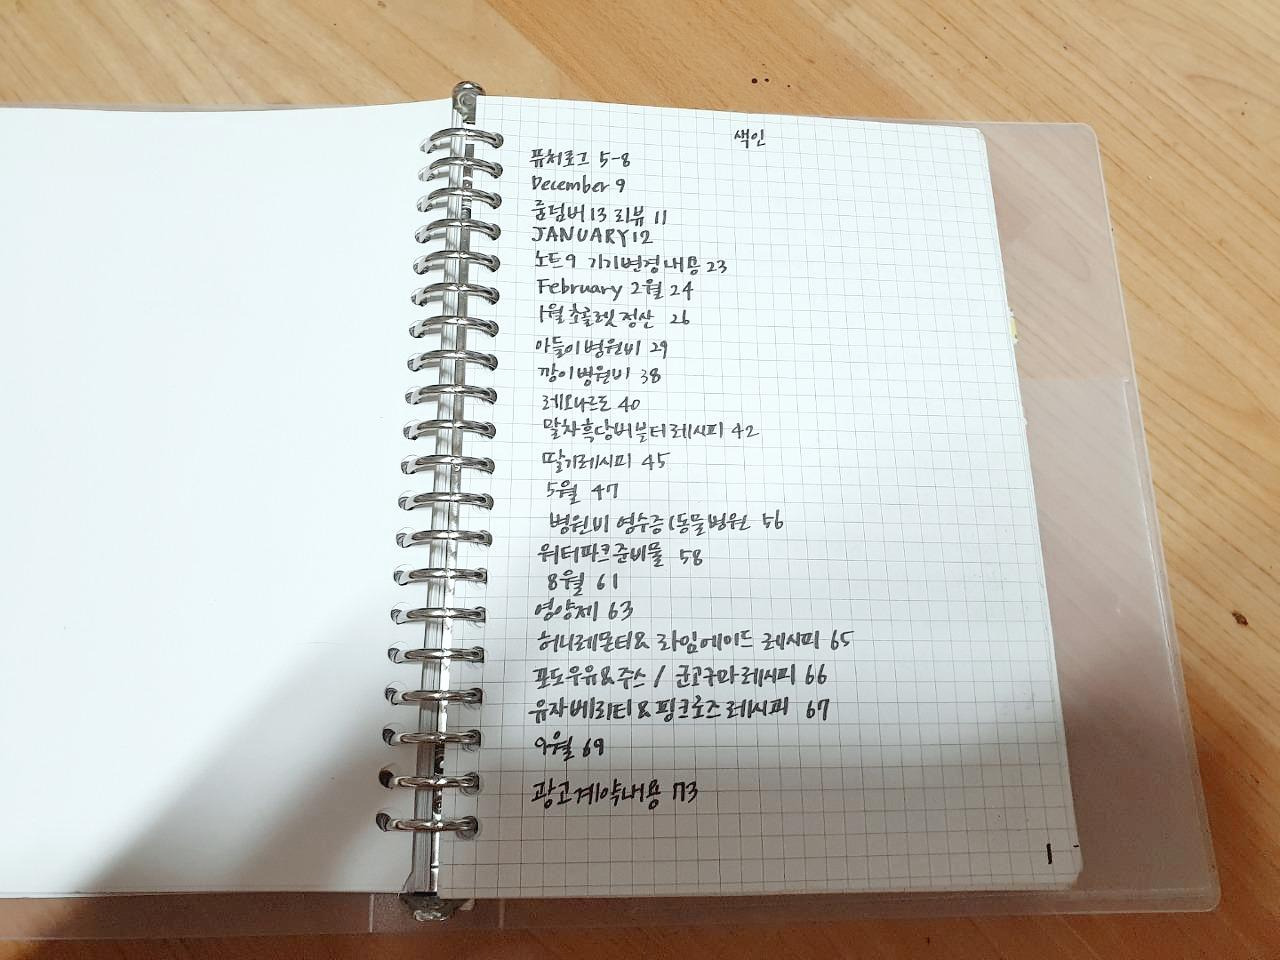 색인
퓨처로그 5-8
December 9
룸덤버13 리뷰 11
JANUARY 12
노트9 기기변경내용 23
February 2월 24
1월 초콜렛 정산 26
아들이병원비 29
깡이병원비 38
레오나르도 40
말차흑당버블티레시피 42
딸기레시피 45
5월 47
병원비 영수증(동물병원 56
워터파크준비물 58
8월 61
영양제 63
허니레몬티& 라임에이드 레시피 65
포도우유&주스 / 군고구마레시피 66
유자베리티&핑크로즈레시피 67
9월 69
광고계약내용 73
1